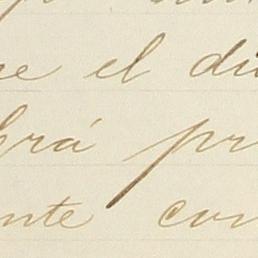 re el di
brá pr
nte con